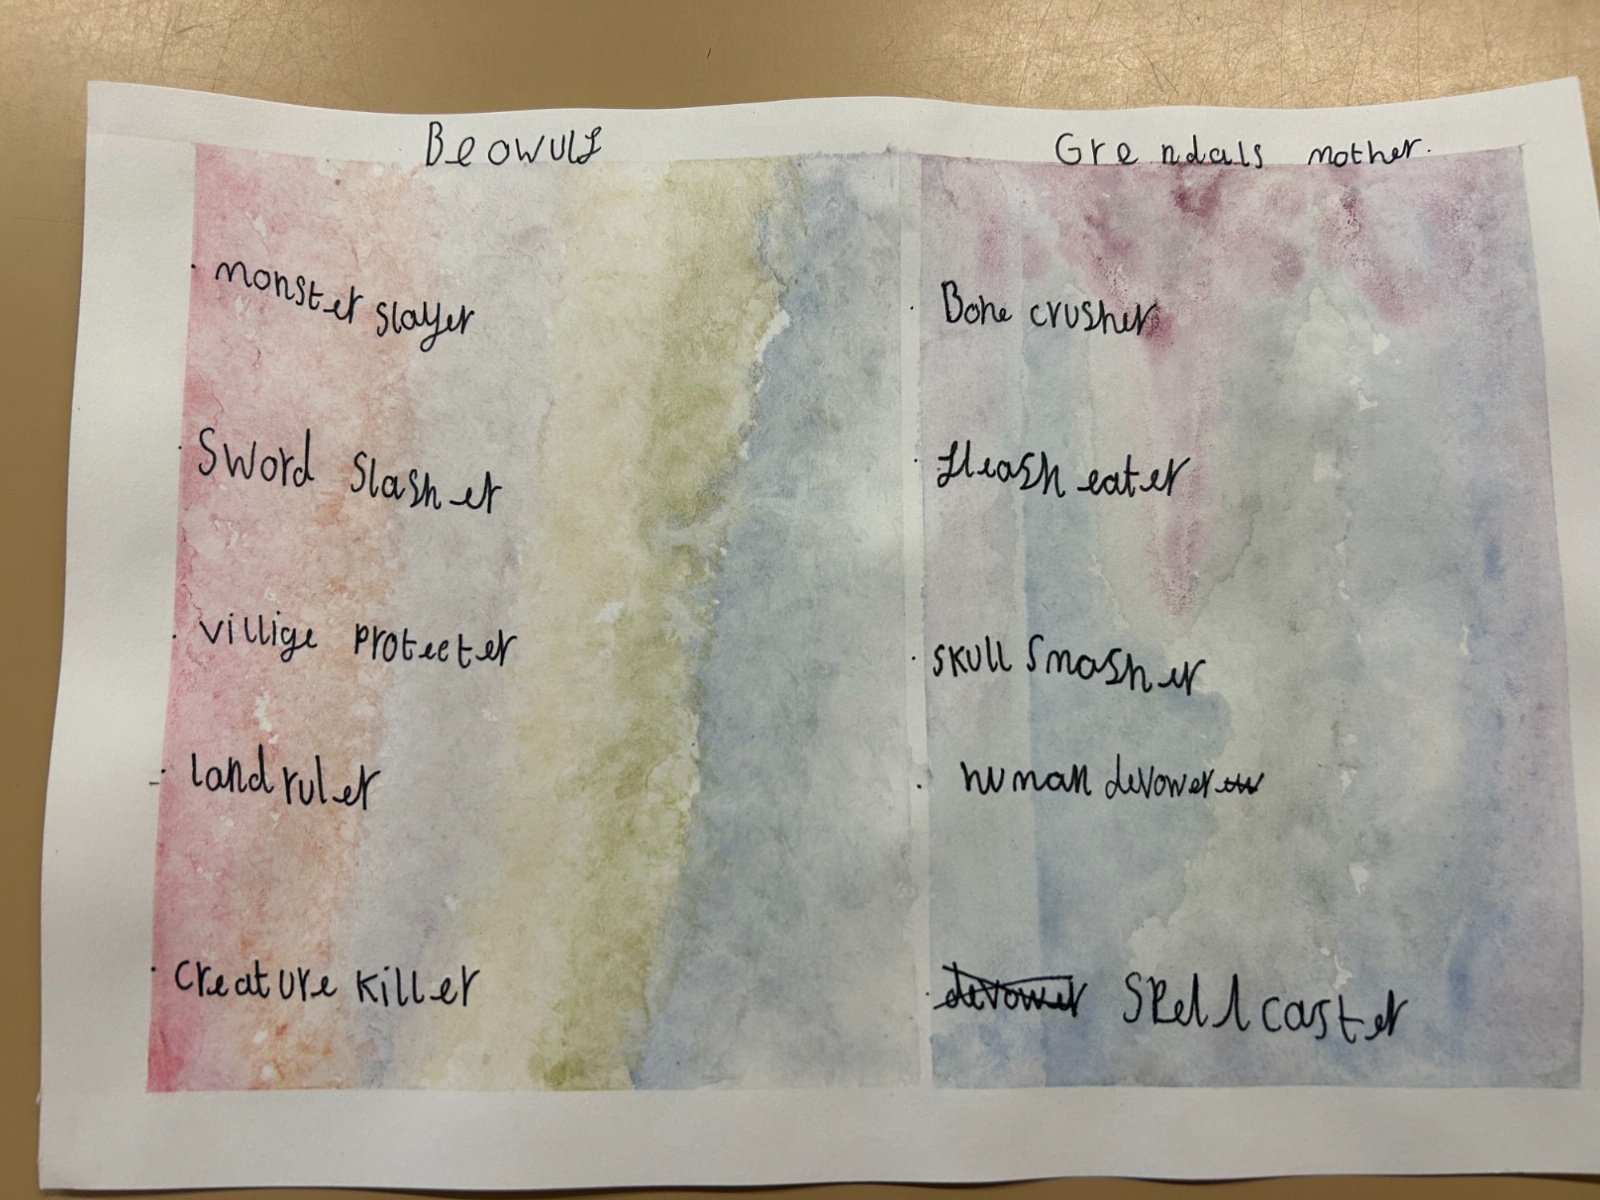 Beowulf
monster slayer
Sword slasher
villige protecter
land ruler
creature killer
Grendals mother.
Bone crusher
fleash eater
skull smasher
human devower
devower spell caster